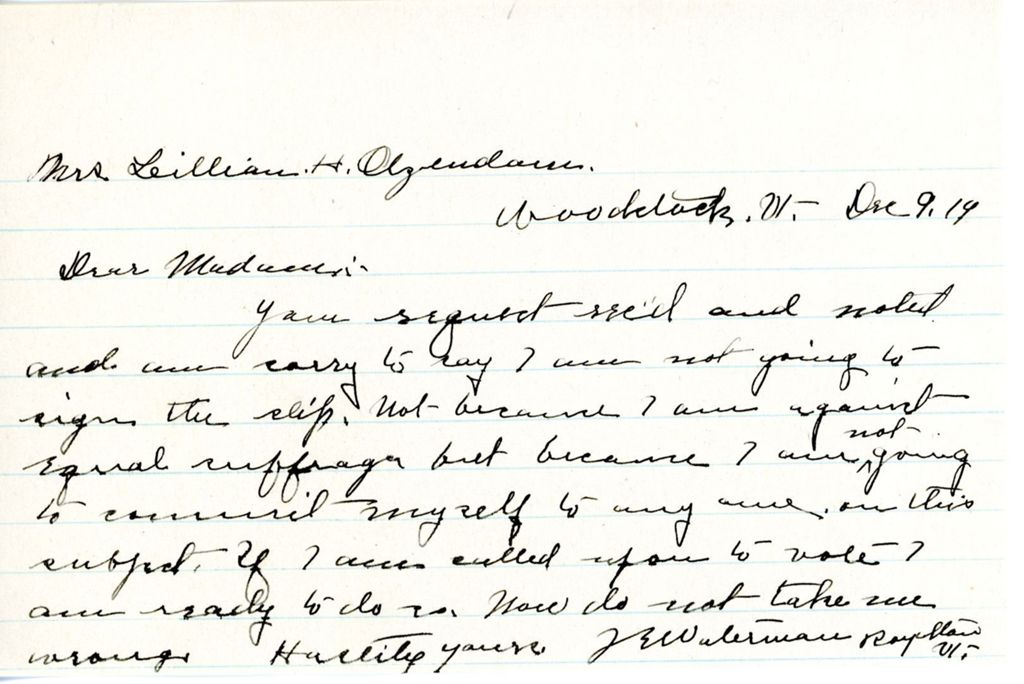 Mrs. Lillian. H. Olzendam.
Woodstock. Vt.- Dec 9. 19
Dear Madam:-
Your request rec'd and noted
and am sorry to say I am not going to
sign the slip. Not because I am against
Equal suffrage but because I am not going
to commit myself to any one. on this
subject. If I am called upon to vote I
am ready to do so. Now do not take me
wrong. Hastily yours. J E Waterman Royalton
Vt.-